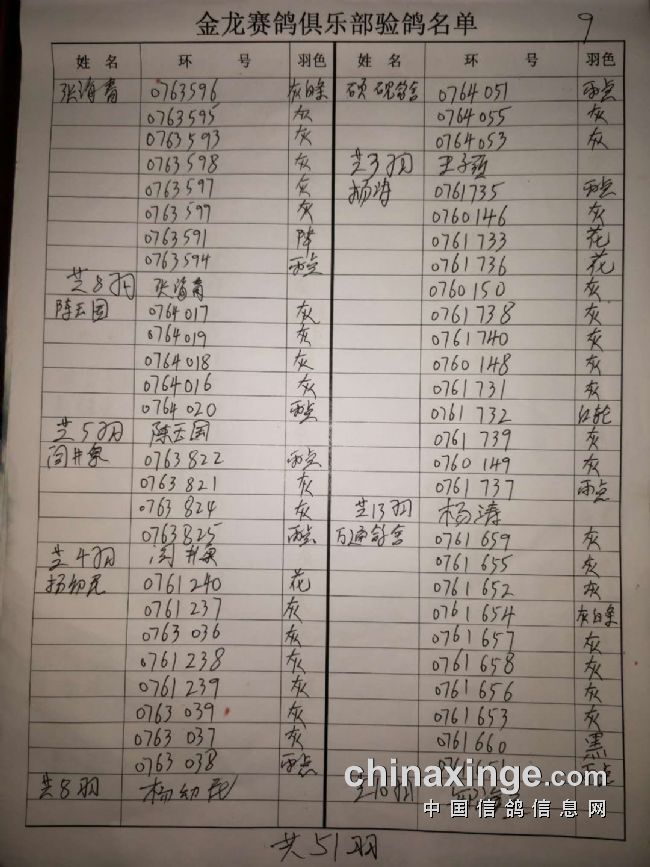 金龙赛鸽俱乐部验鸽名单
9
姓名 环号 羽色
张海青 0763596 灰白条
0763595 灰
0763593 灰
0763598 灰
0763597 灰
0763599 灰
0763591 阵
0763594 雨点
共8羽 张海青
陈玉国 0764017 灰
0764019 灰
0764018 灰
0764016 灰
0764020 雨点
共5羽 陈玉国
0763822 雨点
0763821 灰
0763824 灰
0763825 雨点
共4羽
杨幼民 0761240 花
0761237 灰
0763036 灰
0761238 灰
0761239 灰
0763039 灰
0763037 灰
0763038 雨点
共8羽 杨幼民
姓名 环号 羽色
0764051 雨点
0764055 灰
0764053 灰
共3羽
杨涛 0761735 雨点
0760146 灰
0761733 花
0761736 花
0760150 灰
0761738 灰
0761740 灰
0760148 灰
0761731 灰
0761732 红轮
0761739 灰
0760149 灰
0761737 雨点
共13羽 杨涛
万通鸽舍 0761659 灰
0761655 灰
0761652 灰
0761654 灰白条
0761657 灰
0761658 灰
0761656 灰
0761653 灰
0761660 黑
雨点
共10羽
共51羽
chinaxinge.com
中国信鸽信息网